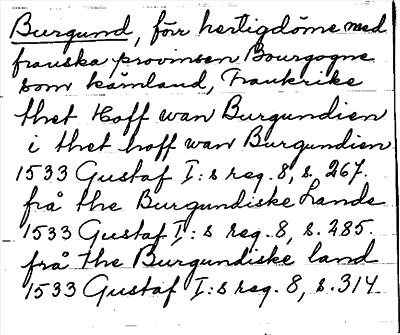 Burgund, förr hertigdöme med
franska provinsen Bourgogne
som kärnland, Frankrike
thet Hoff wan Burgundien
i thet hoff wan Burgundien
1533 Gustaf I:s reg. 8, s. 267.
frå the Burgundiske Lande
1533 Gustaf I:s reg. 8, s. 285.
frå the Burgundiske land
1533 Gustaf I:s reg. 8, s. 314.